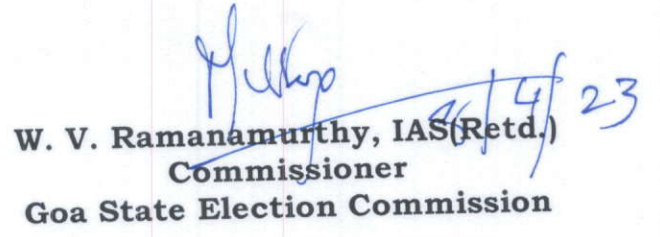 /4/23
W. V. Ramanamurthy, IAS(Retd.)
Commissioner
Goa State Election Commission